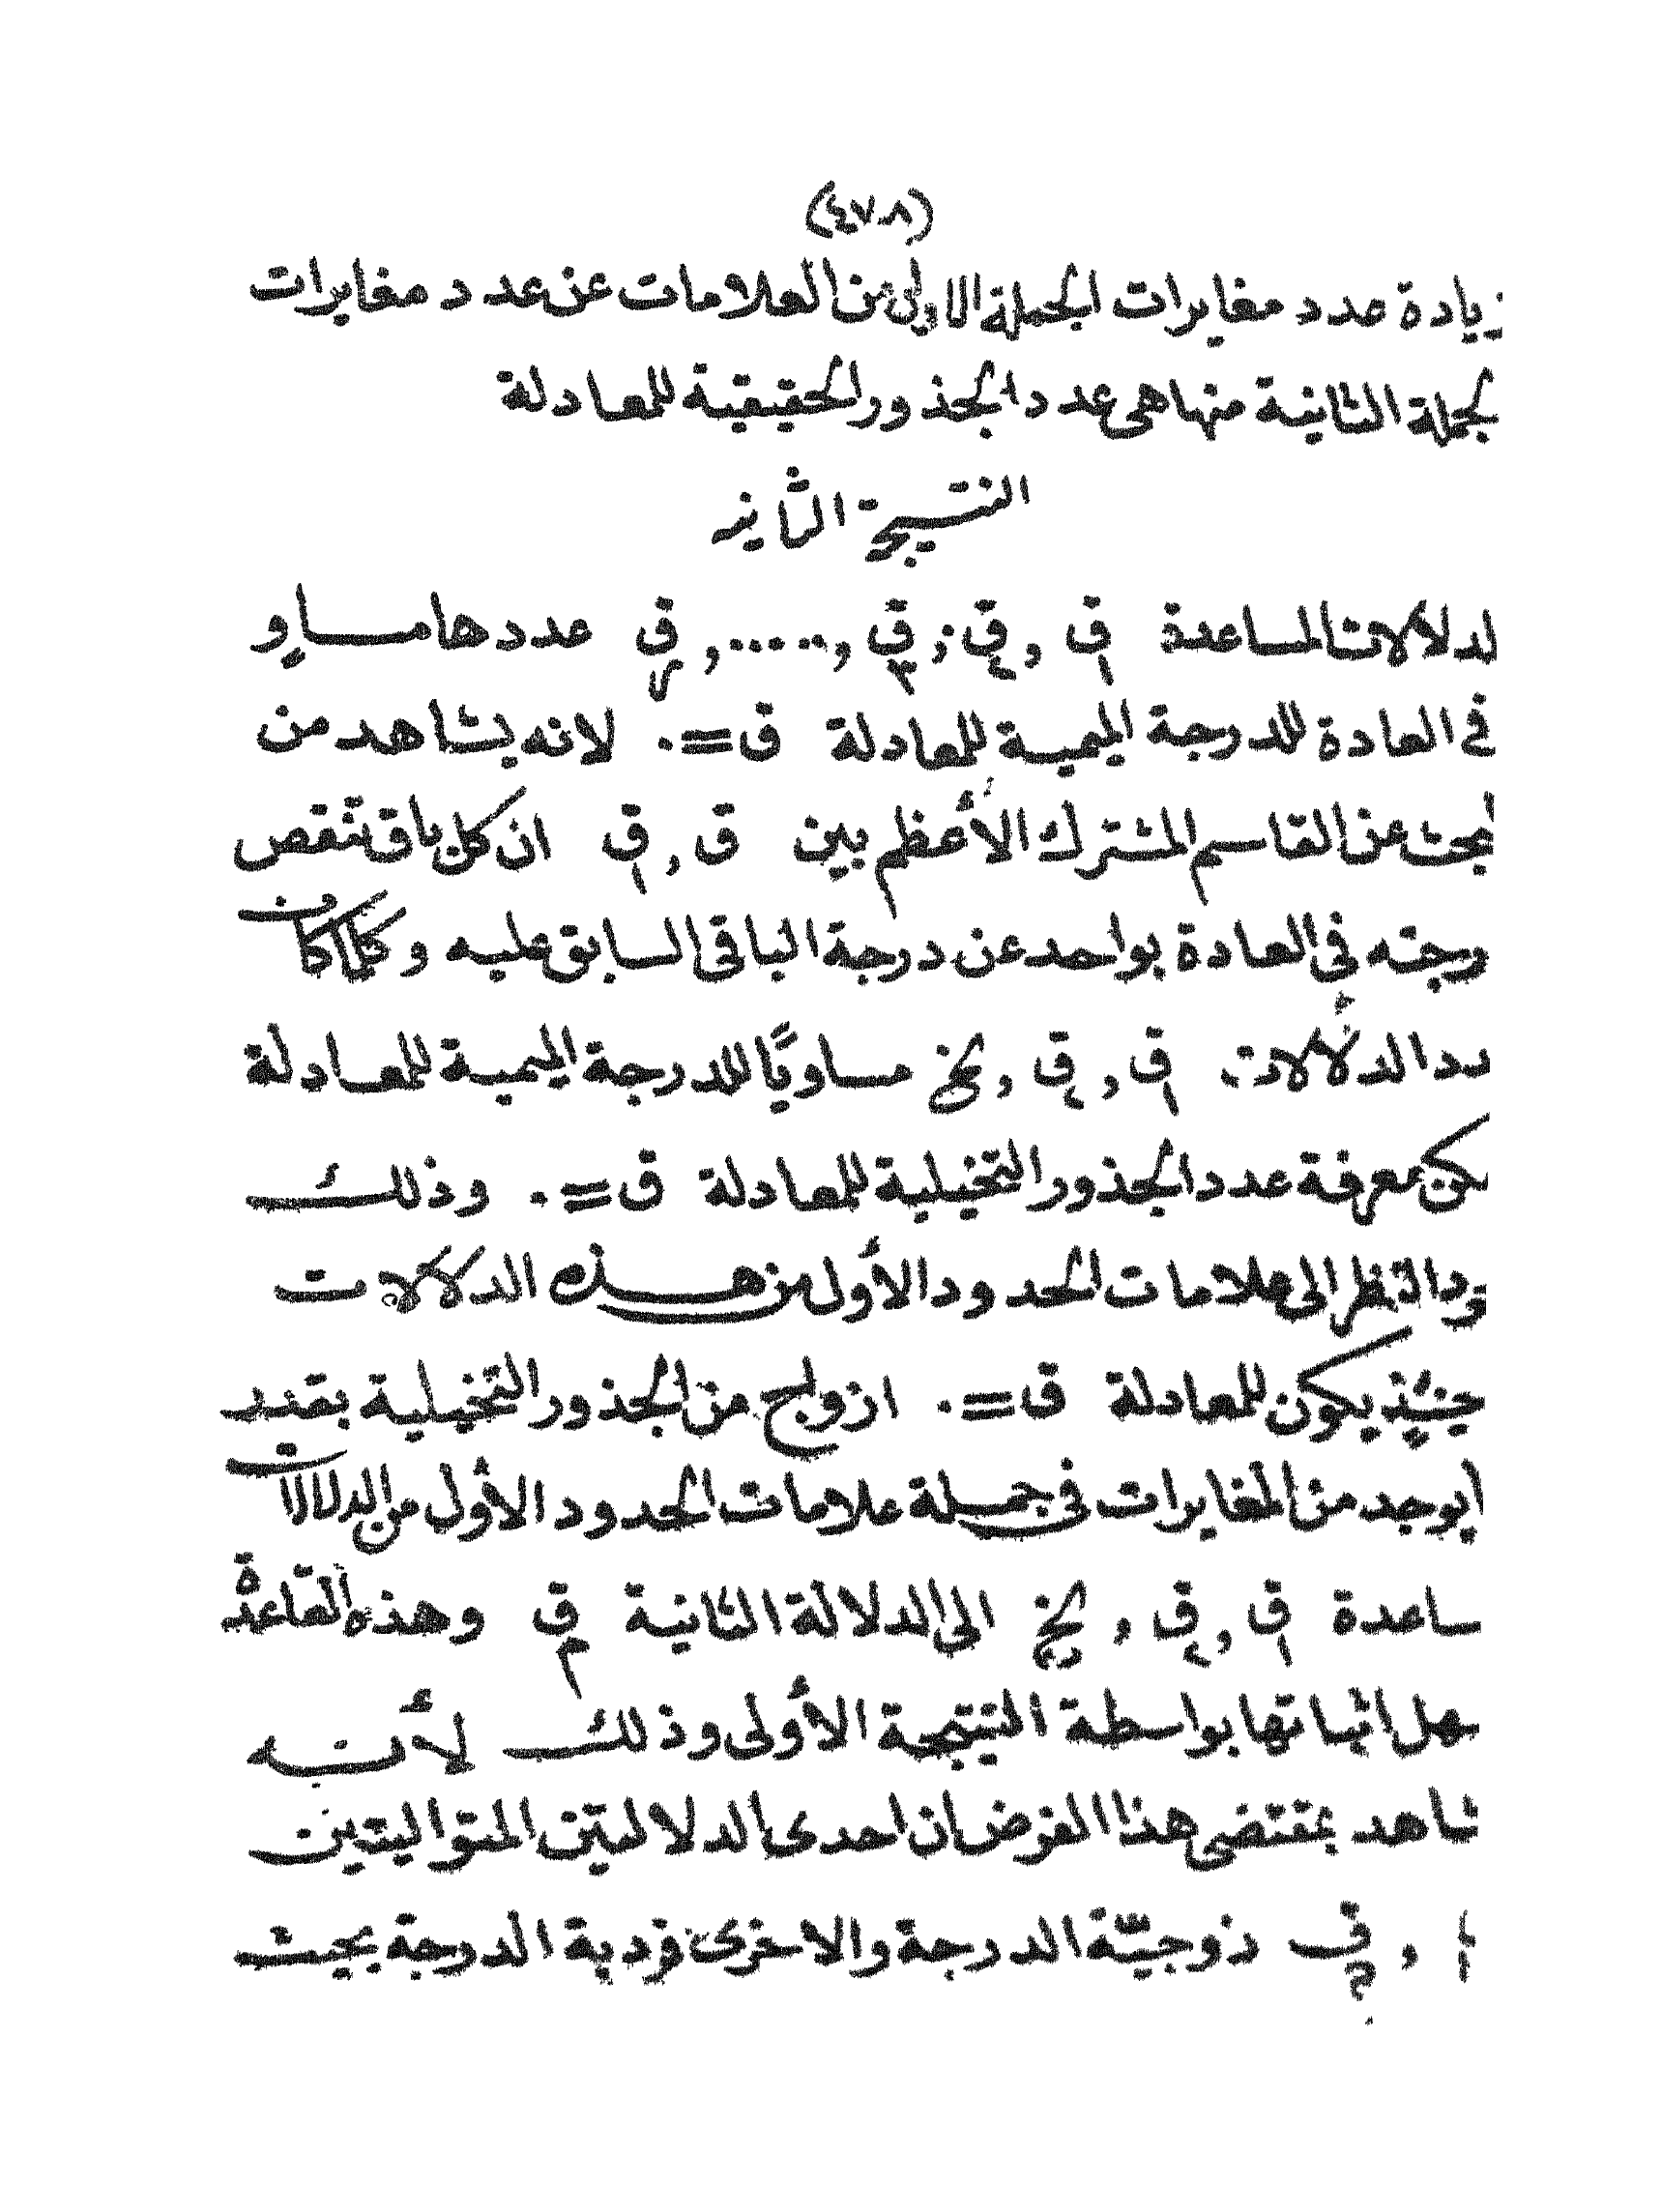 (٤٧٨)
زيادة عدد مغايرات الجملة الاولى من العلامات عن عدد مغايرات
لجملة الثانية منها هى عدد الجذور الحقيقية للمعادلة
النتيجة الثانيه
لدلالات المساعدة ق١ , ق٢ , ق٣ , ..... , قر عددها مساوٍ
فى العادة للدرجة الميمية للمعادلة ق = ٠ لانه يشاهد من
لبحث عن القاسم المشترك الأعظم بين ق , ق١ ان كل باق تنقص
رجته فى العادة بواحد عن درجة الباقى السابق عليه وكلما كان
دد الدلالات ق١ , ق٢ , يخ مساويًا للدرجة الميمية للمعادلة
مكن معرفة عدد الجذور التخيلية للمعادلة ق = ٠ وذلك
جرد النظر الى علامات الحدود الأول من هذه الدلالات
حينئذ يكون للمعادلة ق = ٠ ازواج من الجذور التخيلية بقدر
ايوجد من المغايرات فى جملة علامات الحدود الأول من الدلالات
ساعدة ق١ , ق٢ , يخ الى الدلالة الثانية قم وهذه القاعدة
سهل اثباتها بواسطة النتيجة الأولى وذلك لأنه
شاهد بمقتضى هذا الفرض ان احدى الدلالتين المتواليتين
, ق زوجيّة الدرجة والاخرى فردية الدرجة بحيث